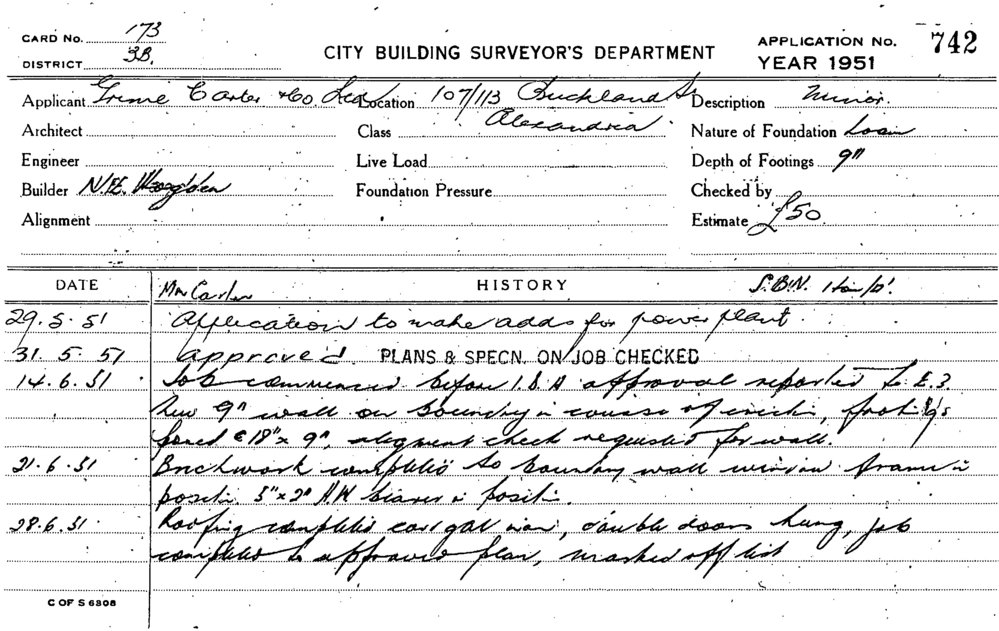 CARD No. 173
DISTRICT 3B.
CITY BUILDING SURVEYOR'S DEPARTMENT
APPLICATION No. 742
YEAR 1951
Applicant Grime Carter & Co Location 107/113 Buckland St Description Minor.
Architect Class Alexandria Nature of Foundation Loam
Engineer Live Load Depth of Footings 9"
Builder N.E. Foundation Pressure Checked by
Alignment Estimate £50.
DATE HISTORY
Mr Carter S.B.N.
29.5.51 Application to make adds for power plant.
31.5.51 Approved PLANS & SPECN. ON JOB CHECKED
14.6.51 Job commenced before approval reported to
New 9" wall on boundry in course of erection, footings
18" x 9" aligment check requested for wall.
21.6.51 Brickwork completed to boundary wall window frame in
position 5" x 2" H.W. bearer in position.
28.6.51 Roofing completed corr gal iron, double doors hung, job
completed to approved plan, marked off list
C OF S 6308